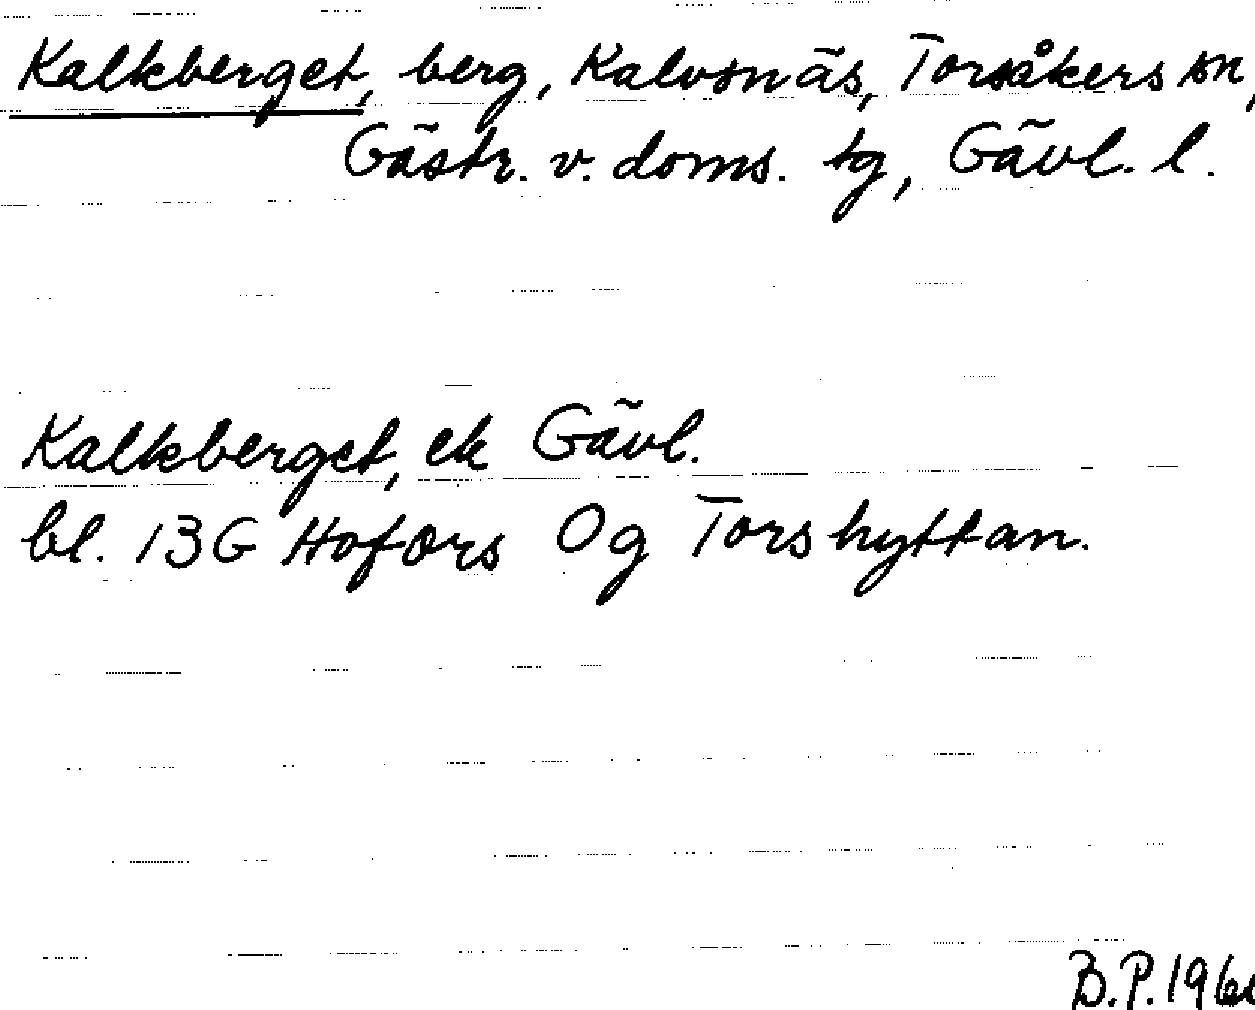 Kalkberget, berg, Kalvsnäs, Torsåkers sn,
Gästr. v. doms. tg, Gävl. l.
Kalkberget, ek Gävl.
bl. 13G Hofors 0g Torshyttan.
B.P.